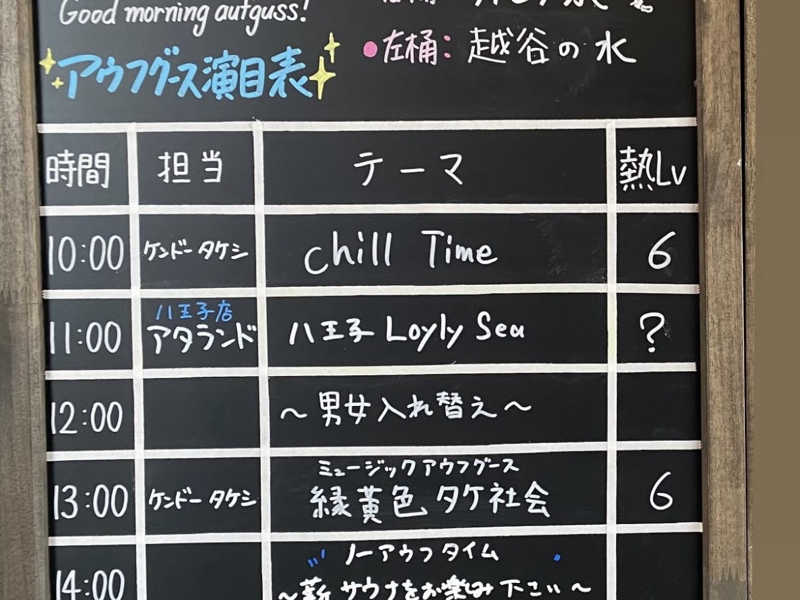 Good morning aufguss!
●左桶: 越谷の水
アウフグース演目表
時間 担当 テーマ 熱Lv
10:00 ケンドータケシ chill Time 6
八王子店
11:00 アタランド 八王子 Loyly Sea ?
12:00 ～男女入れ替え～
ミュージックアウフグース
13:00 ケンドータケシ 緑黄色タケ社会 6
ノーアウフタイム
14:00 ～薪サウナをお楽しみ下さい～